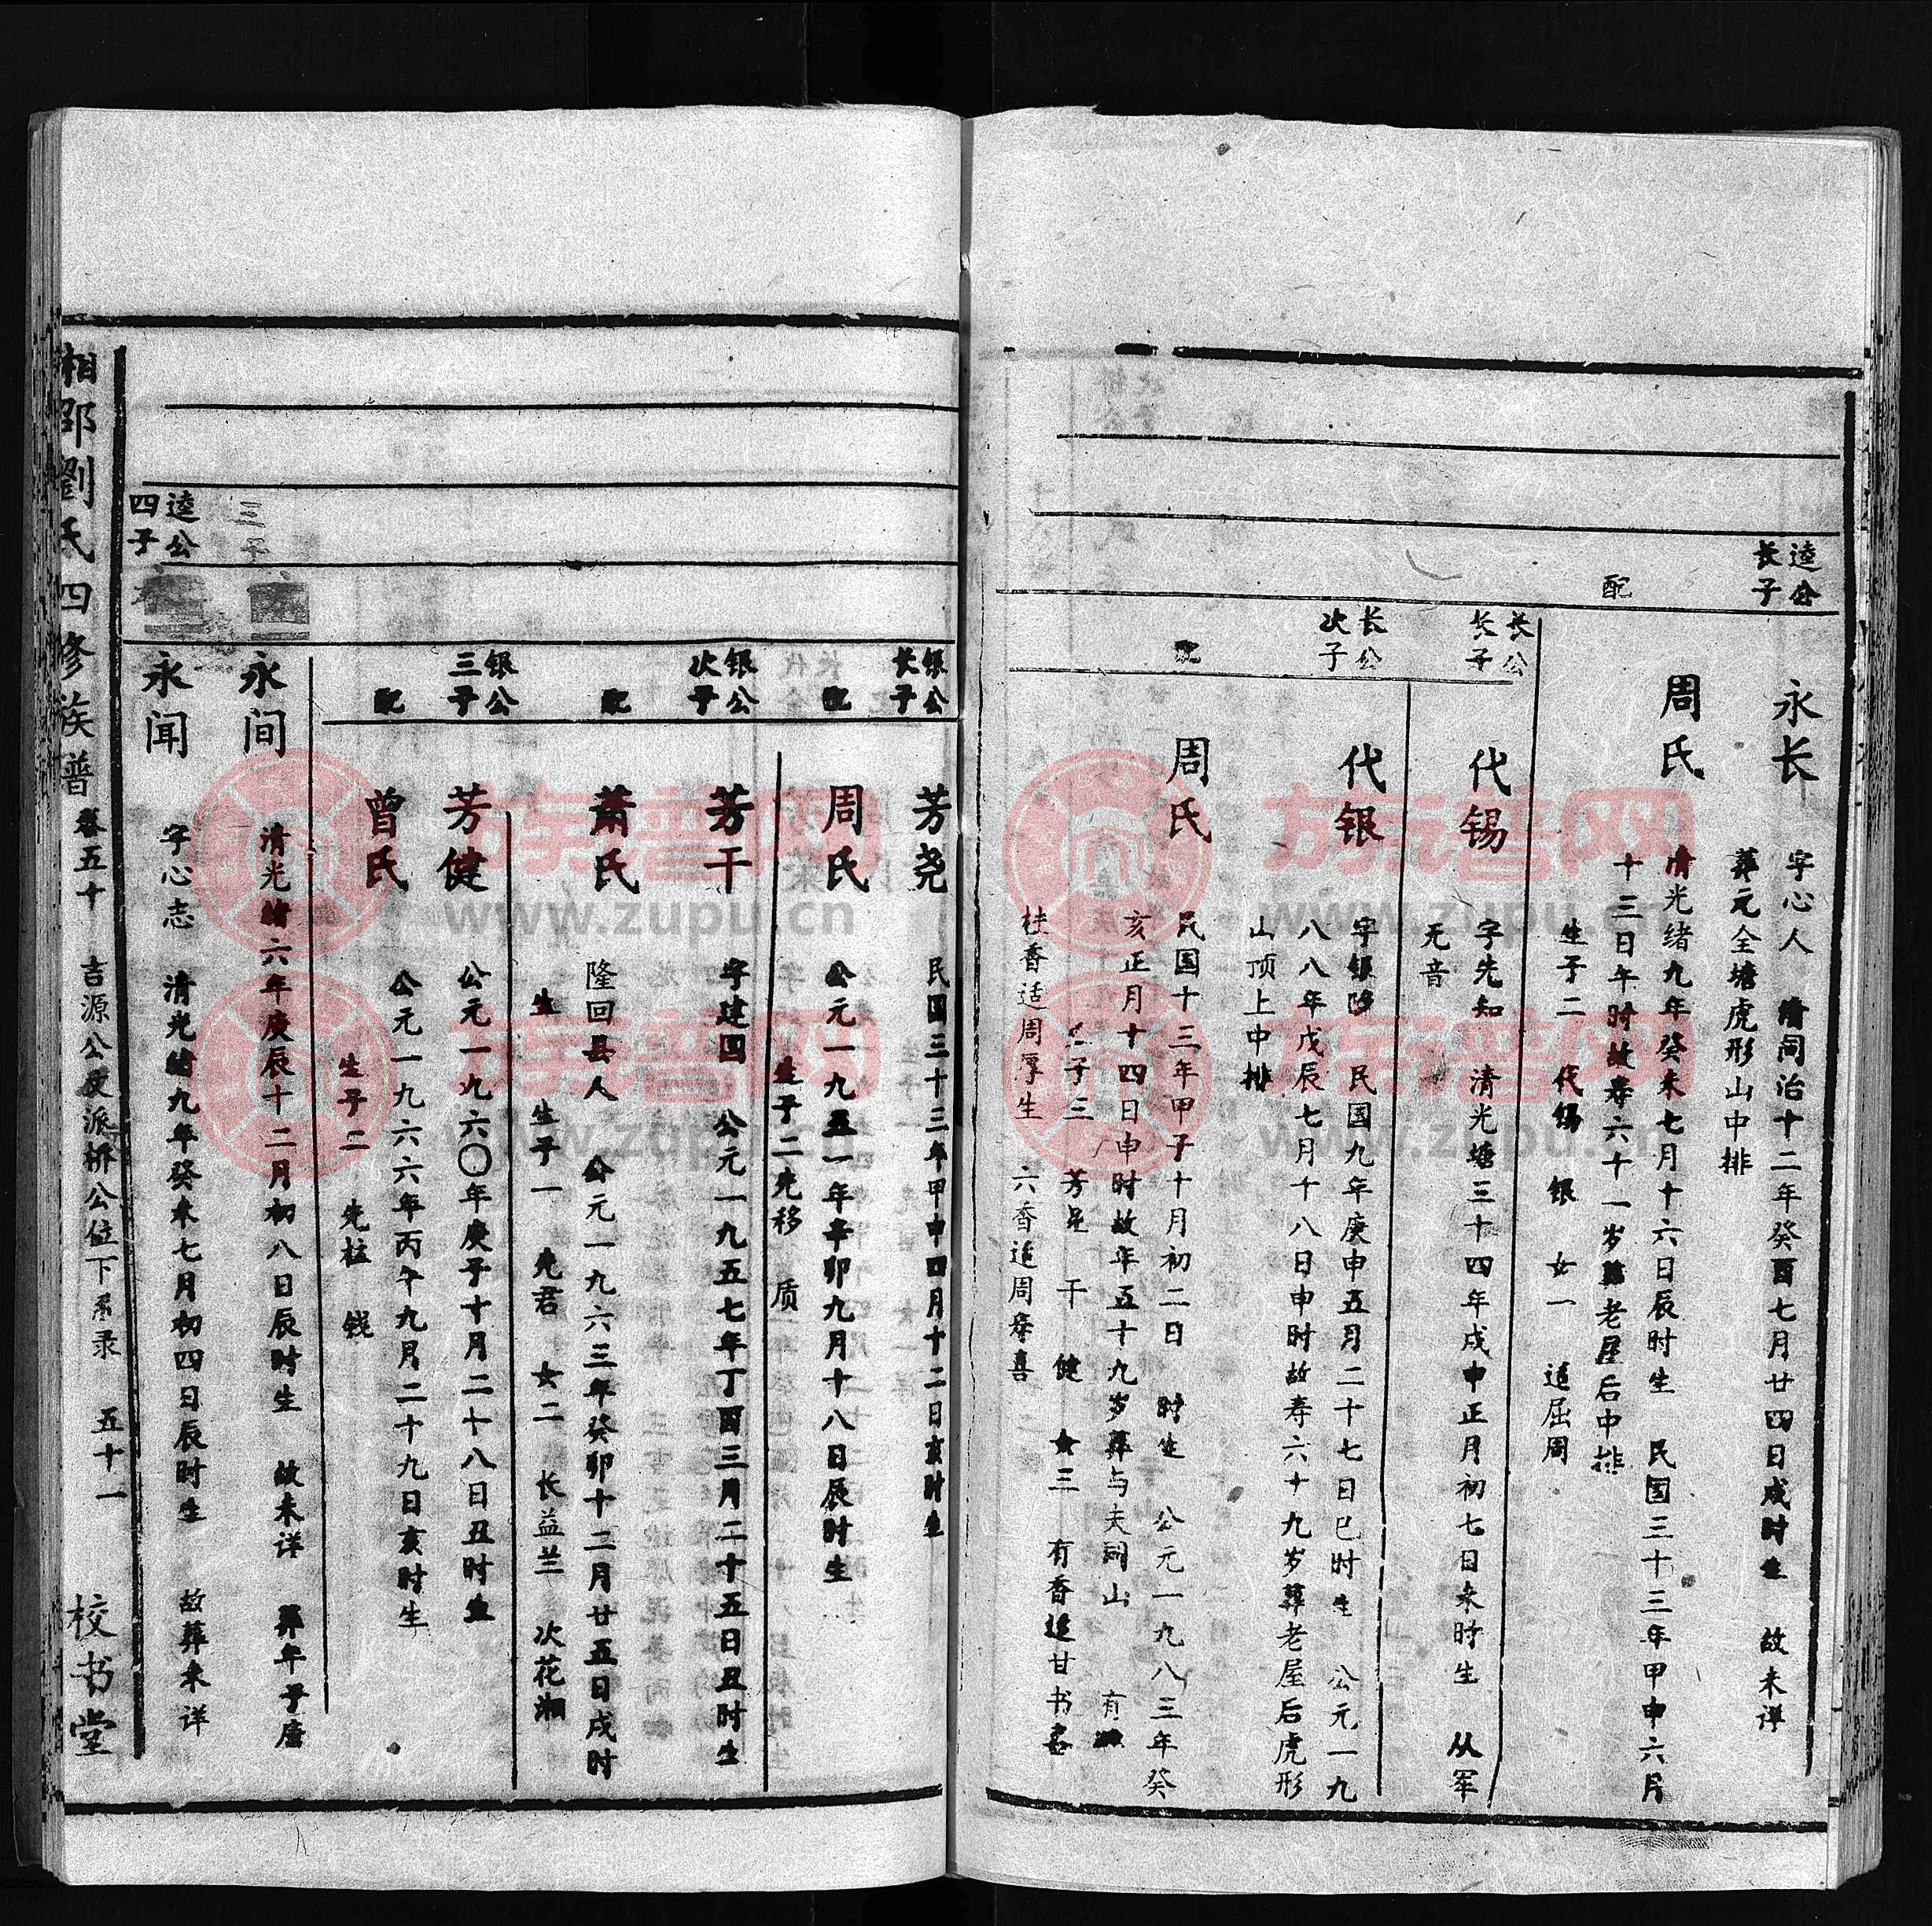 逵公
长子
永长
字心人 清同治十二年癸酉七月廿四日戍时生 故未详
葬元全塘虎形山中排
配
周氏
清光绪九年癸未七月十六日辰时生 民国三十三年甲申六月
十三日午时故寿六十一岁葬老屋后中排
生子二 代锡 银 女一 适屈周
长公
长子
代锡
字先知 清光塘三十四年戍申正月初七日未时生 从军
无音
长公
次子
代银
字银陟 民国九年庚申五月二十七日巳时生 公元一九
八八年戊辰七月十八日申时故寿六十九岁葬老屋后虎形
山顶上中排
配
周氏
民国十三年甲子十月初二日 时生 公元一九八三年癸
亥正月十四日申时故年五十九岁葬与夫同山 有
子三 芳尧 干 健 女三 有香适甘书
桂香适周厚生 六香适周 喜
银公
长子
芳尧
民国三十三年甲申四月十二日亥时生
配
周氏
公元一九五一年辛卯九月十八日辰时生
生子二尧移 质
银公
次子
芳干
字建四 公元一九五七年丁酉三月二十五日丑时生
配
萧氏
隆回县人 公元一九六三年癸卯十二月廿五日戍时
生 生子一 尧君 女二 长益兰 次花湘
银公
三子
芳健
公元一九六〇年庚子十月二十八日丑时生
配
曾氏
公元一九六六年丙午九月二十九日亥时生
生子二 尧柱 钱
三子
永间
清光绪六年庚辰十二月初八日辰时生 故未详 葬年子唐
逵公
四子
永闻
字心志 清光绪九年癸未七月初四日辰时生 故葬未详
湘邵劉氏四修族普 卷五十 吉源公房派桥公位下系录 五十一 校书堂
族谱网
www.zupu.cn
族谱网
www.zupu.cn
族谱网
www.zupu.cn
族谱网
www.zupu.cn